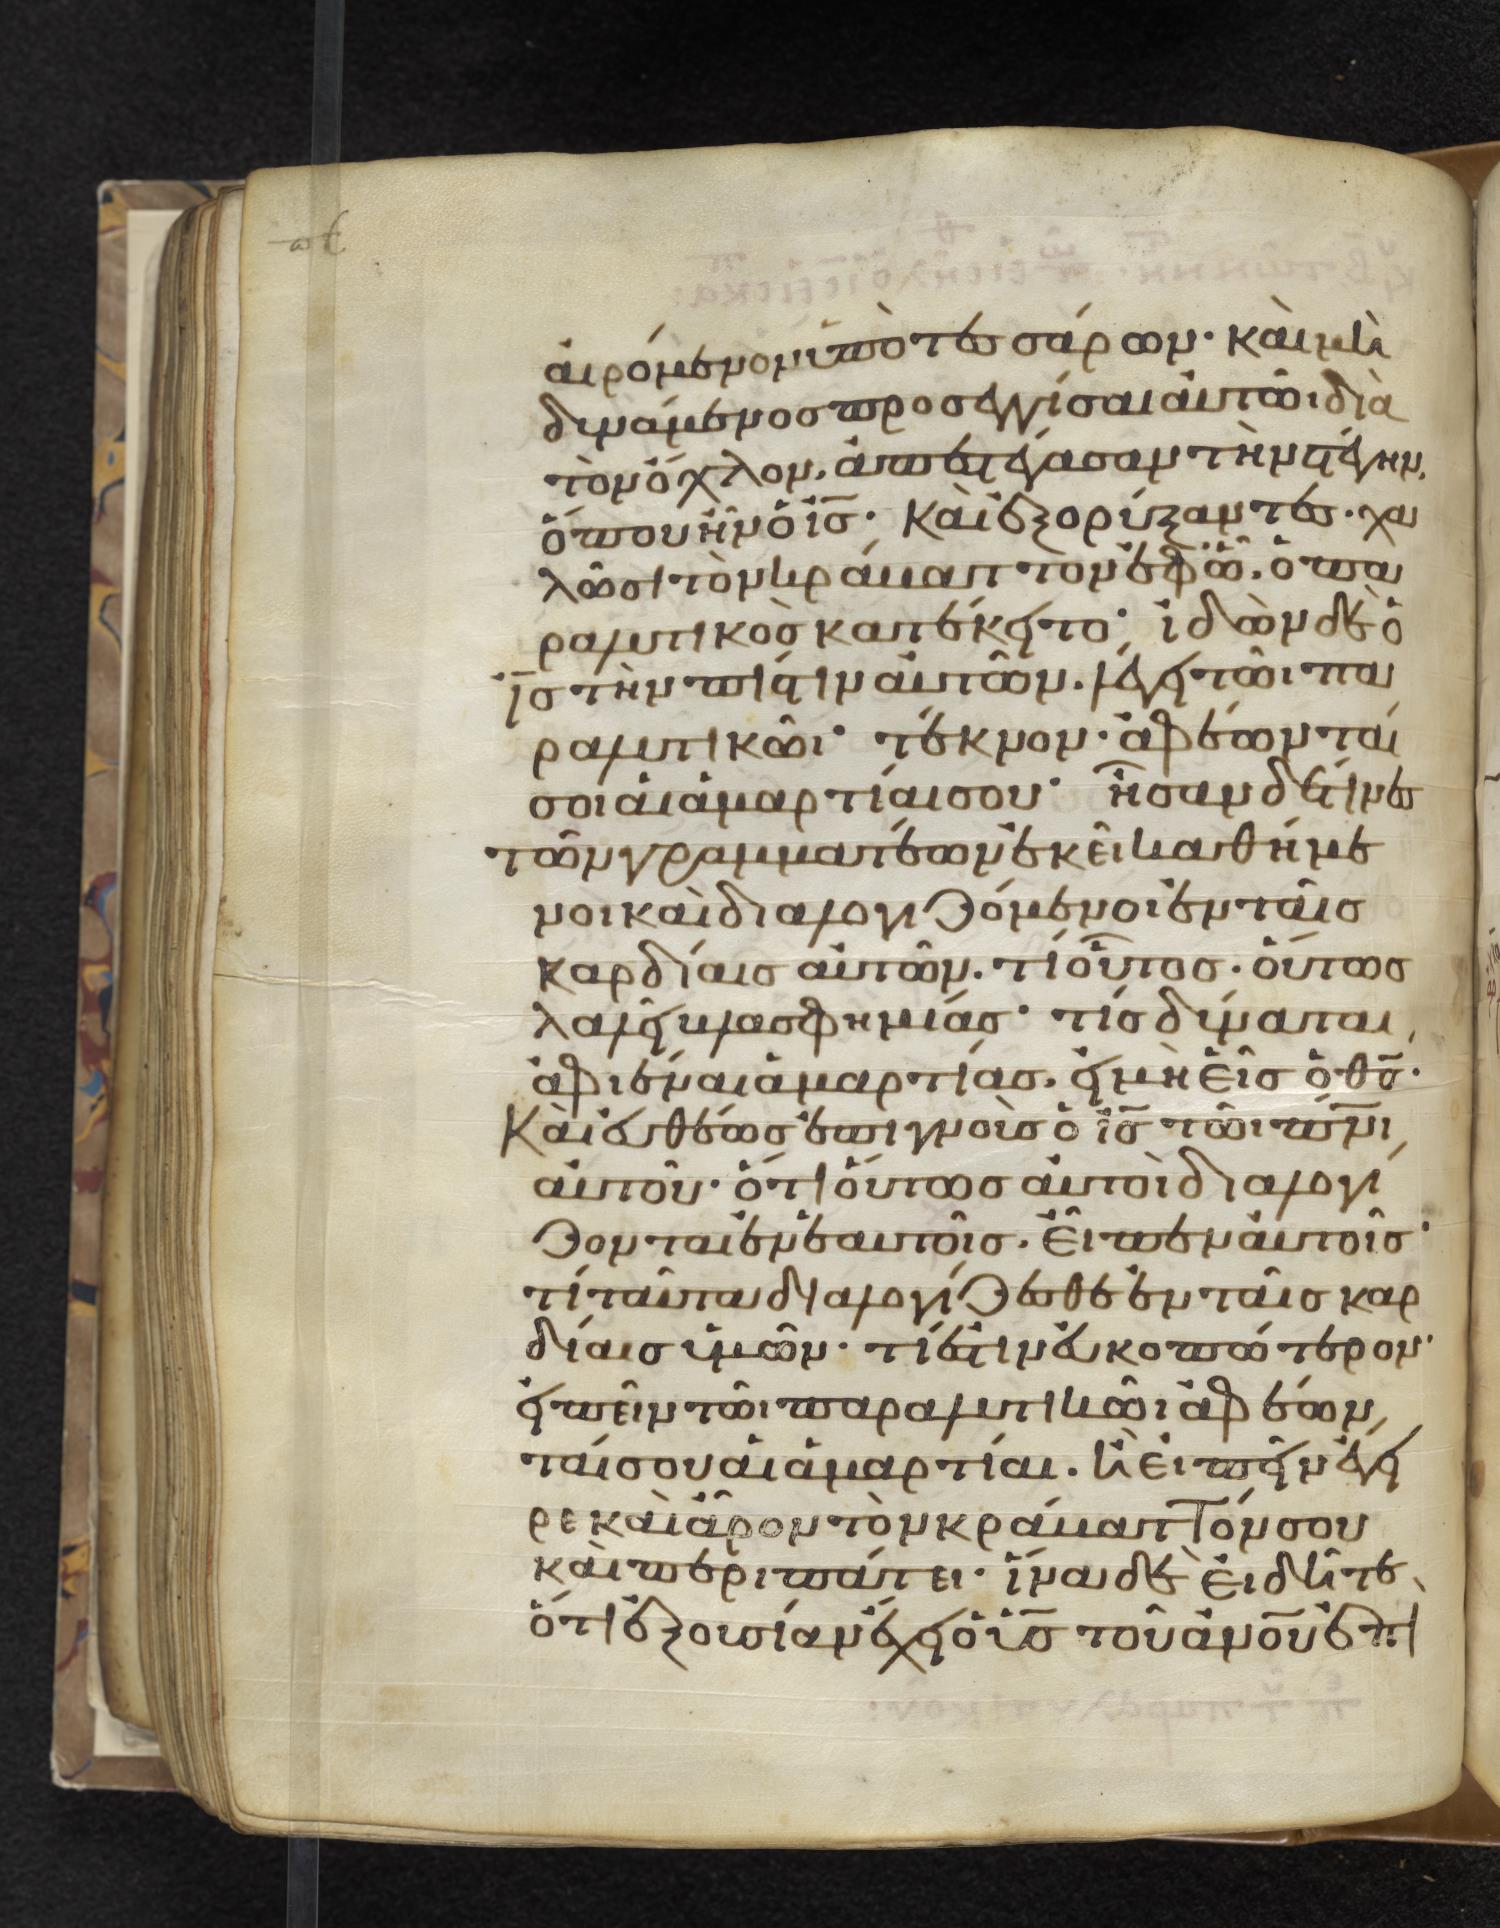 αἰρόμενον ὑπὸ τεσσάρων· καὶ μὴ
δυνάμενος προσεγγίσαι αὐτῶι διὰ
τὸν ὄχλον, ἀπεστέγασαν τὴν στέγην,
ὅπου ἦν ὁ ῑς̄· καὶ ἐξορύξαντες· χα
λῶσι τὸν κράβαττον ἐφ ὧ̂· ὁ πα
ραλυτικὸς κατέκειτο· ἰδὼν δὲ ὁ
ῑς̄ τὴν πίστιν αὐτῶν· λέγει τῶι πα
ραλυτικῶι· τέκνον· ἀφέωνται
σοι αἱ ἁμαρτίαι σου· ἦσαν δέ τινες
τῶν γραμματέων ἐκεῖ καθήμε
νοι καὶ διαλογιζόμενοι ἐν ταῖς
καρδίαις αὐτῶν· τί οὗτος· οὕτως
λαλεῖ βλασφημίας· τίς δύναται
ἀφιέναι ἁμαρτίας· εἰ μὴ εἷς ὁ θς̄·
Καὶ εὐθέως ἐπιγνοὺς ὁ ῑς̄ τῶι πν̄ι
αὐτοῦ· ὅτι οὕτως αὐτοὶ διαλογί
ζονται ἐν ἑαυτοῖς· εἶπεν αὐτοῖς·
τί ταῦτα διαλογίζεσθε ἐν ταῖς καρ
δίαις ὑμῶν· τί ἐστιν εὐκοπώτερον·
εἰπεῖν τῶι παραλυτικῶι ἀφέων
ταί σου αἱ ἁμαρτίαι· ἢ εἰπεῖν ἔγει
ρε καὶ ἆρον τὸν κράβαττόν σου
καὶ περιπάτει· ἵνα δὲ εἰδῆτε
ὅτι ἐξουσίαν ἔχει ὁ ῡς̄ τοῦ ἀνο̄υ ἐπι